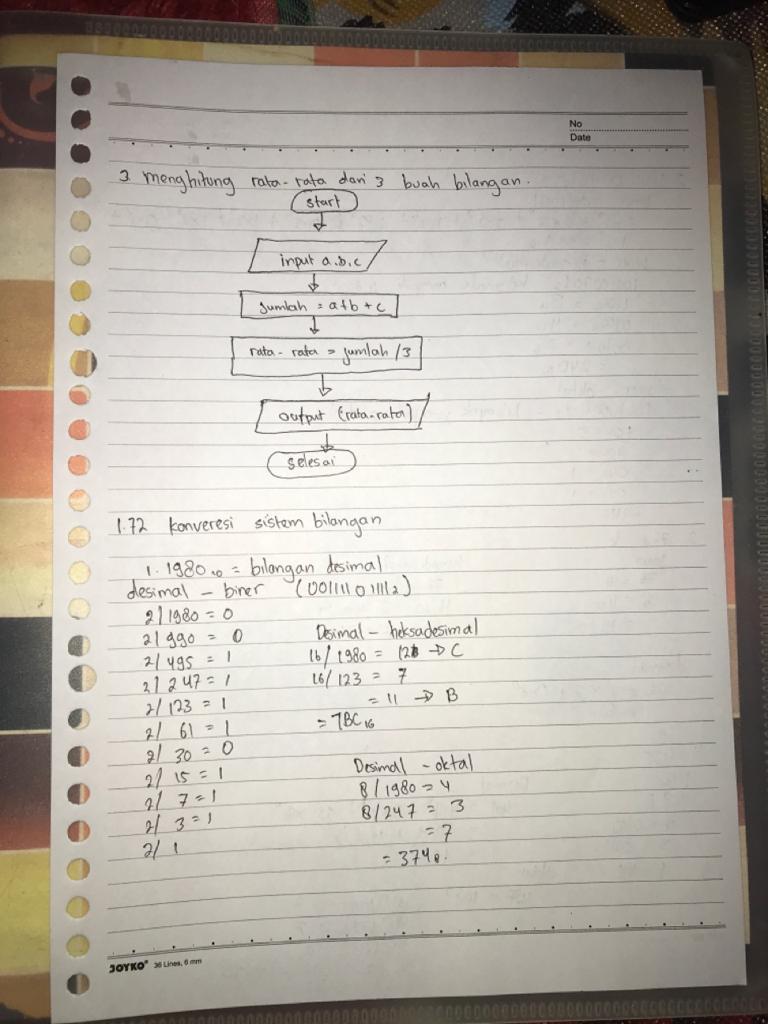 No
Date
3 menghitung rata-rata dari 3 buah bilangan.
start
input a.b.c
jumlah = a+b+c
rata-rata = jumlah /3
output (rata-rata)
selesai
1.72 konveresi sistem bilangan
1. 1980₁₀ = bilangan desimal
desimal - biner (00111101111₂)
2/1980 = 0
2/990 = 0
2/495 = 1
2/247 = 1
2/123 = 1
2/ 61 = 1
2/ 30 = 0
2/ 15 = 1
2/ 7 = 1
2/ 3 = 1
2/ 1
Desimal - heksadesimal
16/1980 = 12 → C
16/123 = 7
= 11 → B
= 7BC₁₆
Desimal - oktal
8/1980 = 4
8/247 = 3
= 7
= 374₈.
JOYKO® 36 Lines, 6 mm